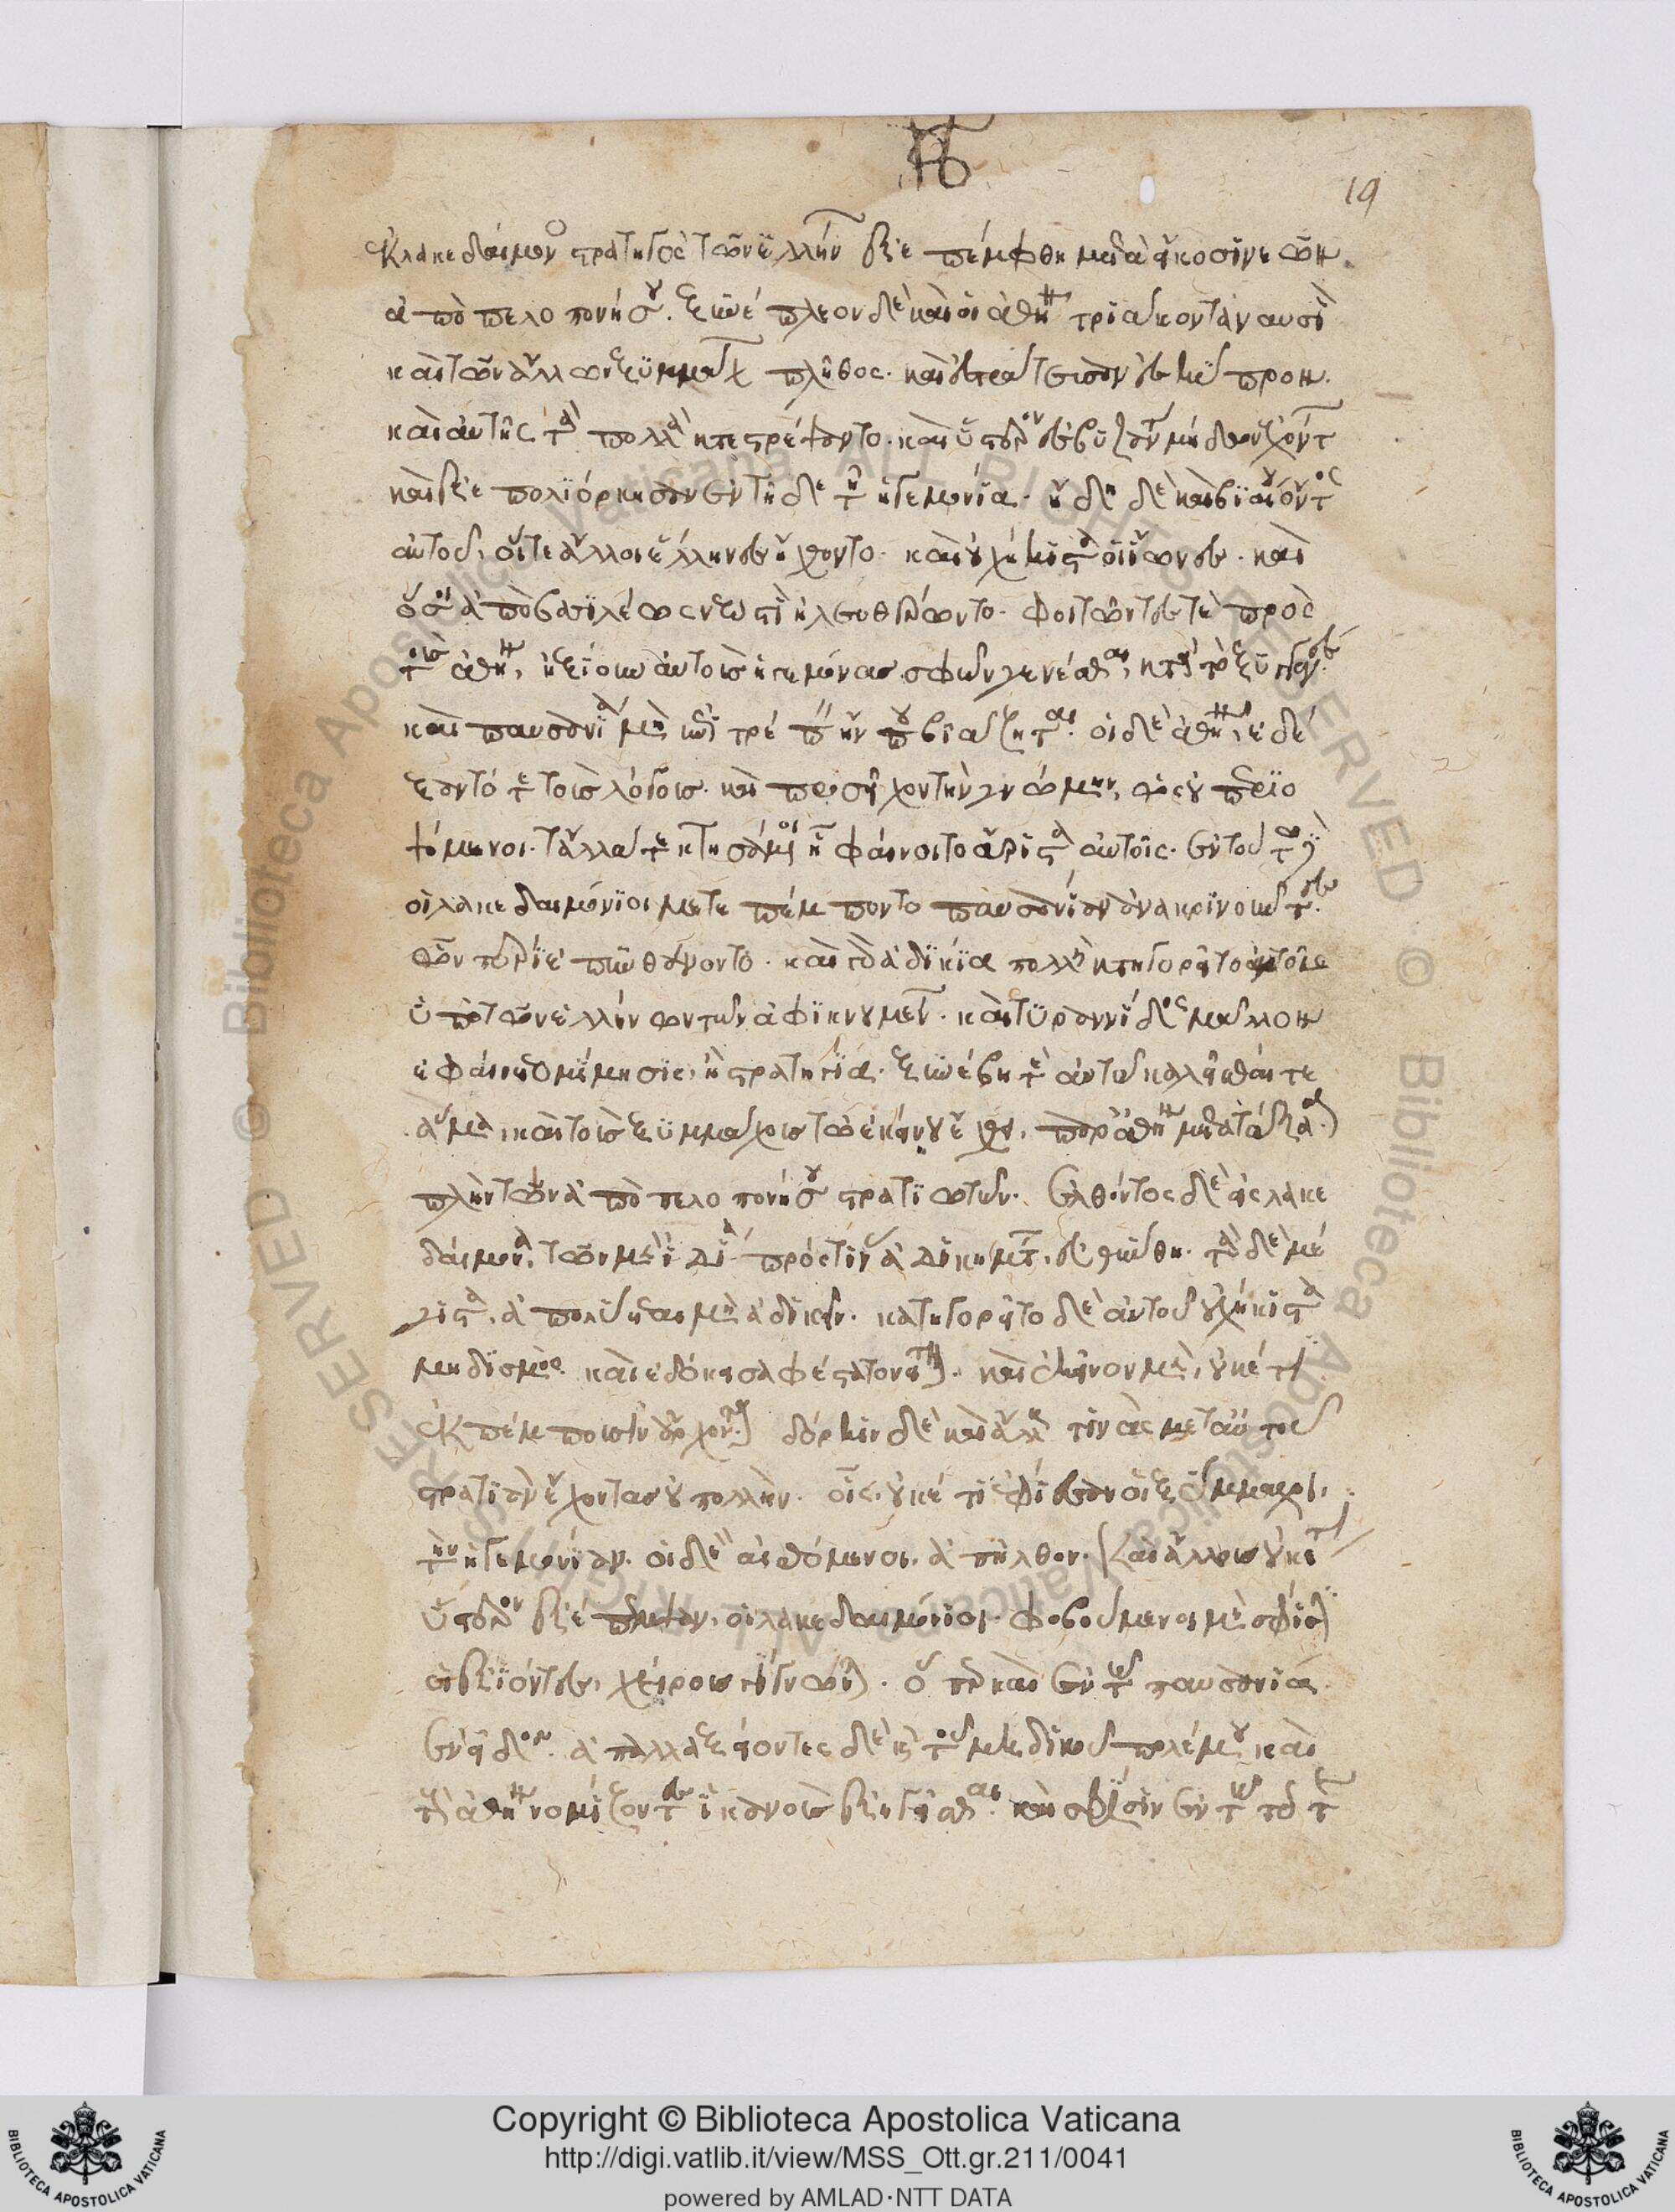 19
ἐκ λακεδαίμονο στρατηγὸς τῶν ἑλλήνων ἐξεπέμφθη μετὰ εἴκοσι νεῶν
ἀπὸ πελοπονήσου. ξυνέπλεον δὲ καὶ οἱ ἀθην τριάκοντα ναυσὶ
καὶ τῶν ἄλλων ξυμμάχ πλῆθος. καὶ ἐστράτευσαν ἐς κύπρον.
καὶ αὐτῆς τὰ πολλὰ κατεστρέψαντο. καὶ ὕστερον ἐς βυζάντ μήδων ἐχόντ
καὶ ἐξεπολιόρκησαν ἐν τῆδε τῆ ἡγεμονία. ἤδη δὲ καὶ βιαίου ὄντος
αὐτοῦ, οἵ τε ἄλλοι ἕλληνες ἤχθοντο. καὶ οὐχ ἥκιστα οἱ ἴωνες. καὶ
ὅσοι ἀπὸ βασιλέως νεωστὶ ἠλευθέρωντο. φοιτῶντές τε πρὸς
τοὺς ἀθην, ἠξίουν αὐτοὺς ἡγεμόνας σφῶν γενέσθαι, κατὰ τὸ ξυγγενὲς
καὶ παυσανία μὴ ἐπιτρέπειν ἤν που βιάζηται. οἱ δὲ ἀθην, ἐδέ
ξαντό τε τοὺς λόγους. καὶ προσεῖχον τὴν γνώμην, ὡς οὐ περιο
ψόμενοι. τἄλλά τε καταστησόμενοι ἧ φαίνοιτο ἄριστα αὐτοῖς. ἐν τούτω
οἱ λακεδαιμόνιοι μετεπέμποντο παυσανίαν ἀνακρινοῦντες
ὧν πέρι ἐπυνθάνοντο. καὶ γὰρ ἀδικία πολλὴ κατηγορεῖτο αὐτοῦ
ὑπὸ τῶν ἑλλήνων τῶν ἀφικνουμέν. καὶ τυραννίδος μᾶλλον
ἐφαίνετο μίμησις, ἢ στρατηγία. ξυνέβη τε αὐτῶ καλεῖσθαί τε
ἅμα, καὶ τοὺς ξυμμάχους τῶ ἐκείνου ἔχθει, παρ' ἀθην μετατάξασθαι
πλὴν τῶν ἀπὸ πελοπονήσου στρατιωτῶν. ἐλθόντος δὲ ἐς λακε
δαίμονα, τῶν μὲν ἰδία πρός τινα ἀδικημάτ, εὐθύνθη. τὰ δὲ μέ
γιστα, ἀπολύεται μὴ ἀδικεῖν. κατηγορεῖτο δὲ αὐτοῦ οὐχ ἥκιστα
μηδισμὸς καὶ ἐδόκει σαφέστατον εἶναι. καὶ ἐκεῖνον μὲν, οὐκέτι
ἐκπέμπουσιν ἄρχοντα δόρκιν δὲ καὶ ἄλλους τινὰς μετ' αὐτοῦ
στρατιὰν ἔχοντας οὐ πολλήν. οἷς, οὐκέτι ἐφίεσαν οἱ ξύμμαχοι,
τὴν ἡγεμονίαν. οἱ δὲ αἰσθόμενοι, ἀπῆλθον. καὶ ἄλλους οὐκέτι
ὕστερον ἐξέπεμψαν, οἱ λακεδαιμόνιοι. φοβούμενοι μὴ σφίσιν
οἱ ἐξιόντες, χείρους γίγνωνται. ὅπερ καὶ ἐν τῶ παυσανία
ἐνεῖδον. ἀπαλλαξείοντες δὲ καὶ τοῦ μηδικοῦ πολέμου καὶ
τοὺς ἀθην νομίζοντες ἱκανοὺς ἐξηγεῖσθαι. καὶ σφίσιν ἐν τῶ τότε
Copyright © Biblioteca Apostolica Vaticana
http://digi.vatlib.it/view/MSS_Ott.gr.211/0041
powered by AMLAD·NTT DATA